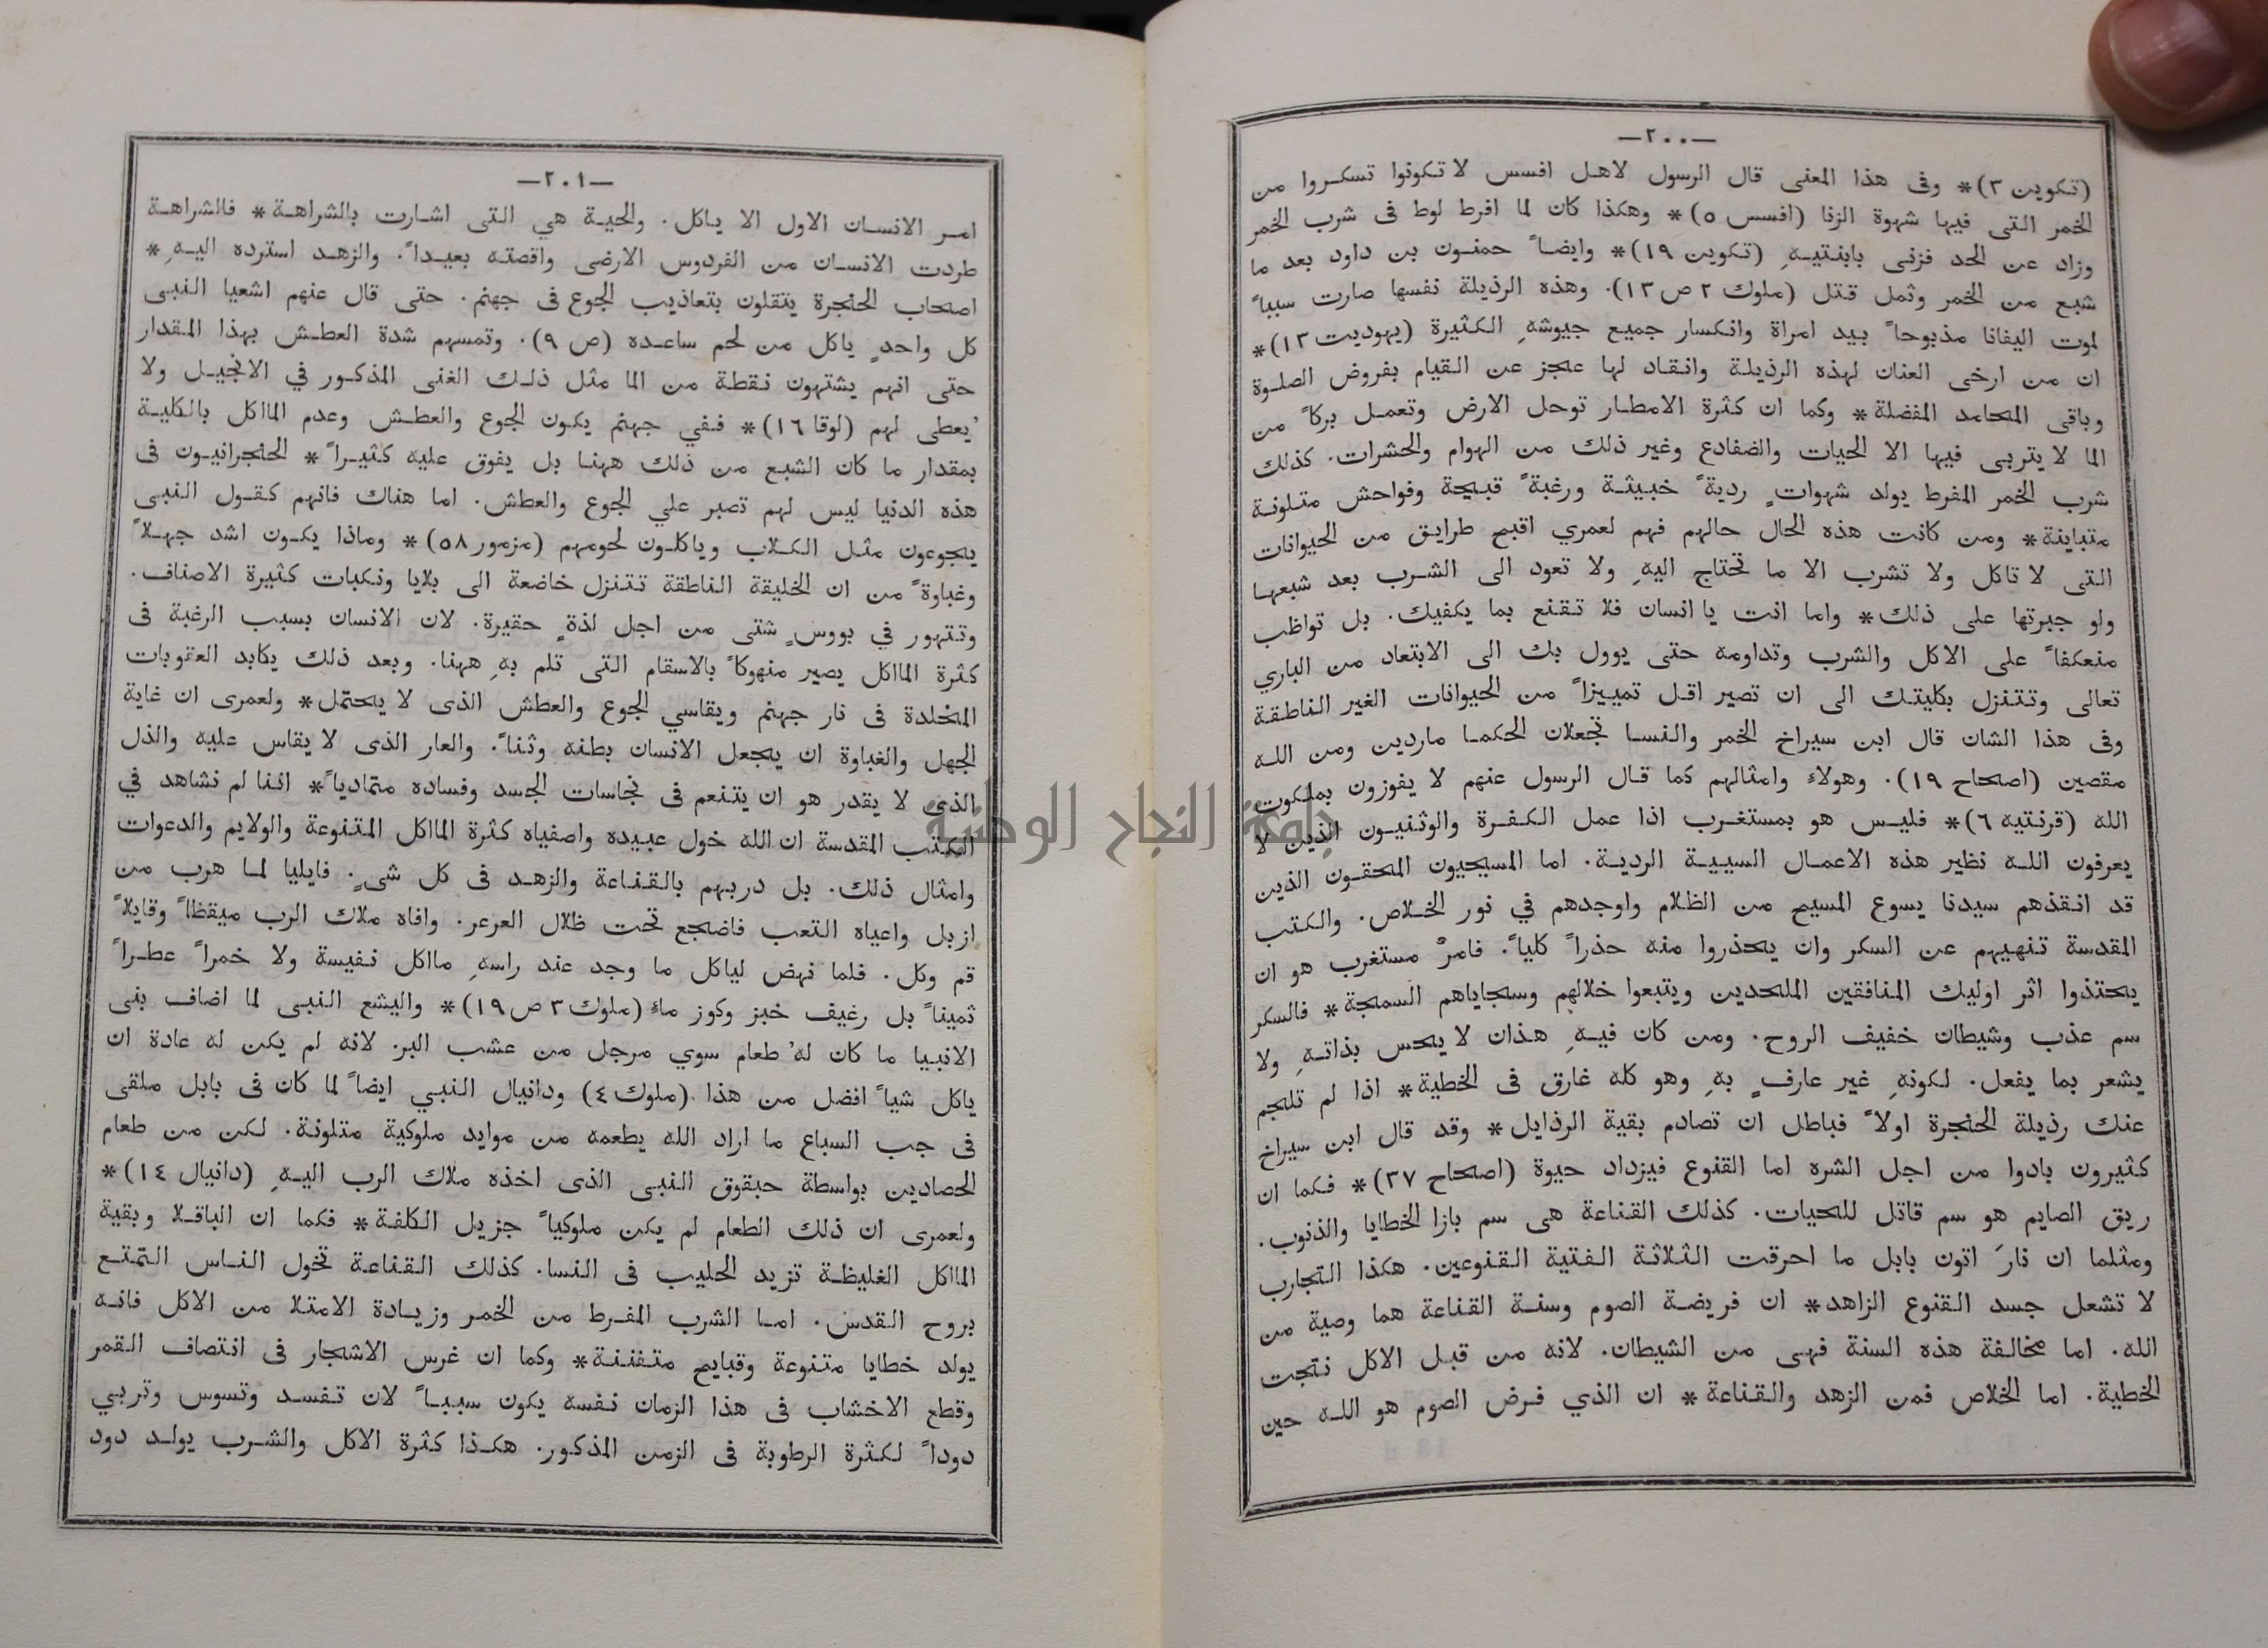 —٢٠٠—
(تكوين ٣)* وفى هذا المعنى قال الرسول لاهل افسس لا تكونوا تسكروا من
الخمر التى فيها شهوة الزنا (افسس ٥)* وهكذا كان لما افرط لوط فى شرب الخمر
وزاد عن الحد فزنى بابنتيهِ (تكوين ١٩)* وايضاً حمنون بن داود بعد ما
شبع من الخمر وثمل قتل (ملوك ٢ ص ١٣). وهذه الرذيلة نفسها صارت سبباً
لموت اليفانا مذبوحاً بيد امراة وانكسار جميع جيوشهِ الكثيرة (يهوديت ١٣)*
ان من ارخى العنان لهذه الرذيلة وانقاد لها عجز عن القيام بفروض الصلوة
وباقى المحامد المفضلة* وكما ان كثرة الامطار توحل الارض وتعمل بركاً من
الما لا يتربى فيها الا الحيات والضفادع وغير ذلك من الهوام والحشرات. كذلك
شرب الخمر المفرط يولد شهواتٍ رديةً خبيثة ورغبةً قبيحة وفواحش متلونة
متباينة* ومن كانت هذه الحال حالهم فهم لعمري اقبح طرايق من الحيوانات
التى لا تاكل ولا تشرب الا ما تحتاج اليهِ ولا تعود الى الشرب بعد شبعها
ولو جبرتها على ذلك* واما انت يا انسان فلا تقنع بما يكفيك. بل تواظب
منعكفاً على الاكل والشرب وتداومه حتى يوول بك الى الابتعاد من الباري
تعالى وتتنزل بكليتك الى ان تصير اقل تمييزاً من الحيوانات الغير الناطقة
وفى هذا الشان قال ابن سيراخ الخمر والنسا تجعلان الحكما ماردين ومن الله
مقصين (اصحاح ١٩). وهولاء وامثالهم كما قال الرسول عنهم لا يفوزون بملكوت
الله (قرنتيه ٦)* فليس هو بمستغرب اذا عمل الكفرة والوثنيون الذين لا
يعرفون الله نظير هذه الاعمال السيية الردية. اما المسيحيون المحقون الذين
قد انقذهم سيدنا يسوع المسيح من الظلام واوجدهم في نور الخلاص. والكتب
المقدسة تنهيهم عن السكر وان يحذروا منه حذراً كلياً. فامرٌ مستغرب هو ان
يحتذوا اثر اوليك المنافقين الملحدين ويتبعوا خلالهم وسجاياهم السمجة* فالسكر
سم عذب وشيطان خفيف الروح. ومن كان فيهِ هذان لا يحس بذاتهِ ولا
يشعر بما يفعل. لكونهِ غير عارفٍ بهِ وهو كله غارق فى الخطية* اذا لم تلجم
عنك رذيلة الحنجرة اولاً فباطل ان تصادم بقية الرذايل* وقد قال ابن سيراخ
كثيرون بادوا من اجل الشره اما القنوع فيزداد حيوة (اصحاح ٣٧)* فكما ان
ريق الصايم هو سم قاتل للحيات. كذلك القناعة هى سم بازا الخطايا والذنوب.
ومثلما ان نارَ اتون بابل ما احرقت الثلاثة الفتية القنوعين. هكذا التجارب
لا تشعل جسد القنوع الزاهد* ان فريضة الصوم وسنة القناعة هما وصية من
الله. اما مخالفة هذه السنة فهى من الشيطان. لانه من قبل الاكل نتجت
الخطية. اما الخلاص فمن الزهد والقناعة* ان الذي فرض الصوم هو الله حين
—٢٠١—
امر الانسان الاول الا ياكل. والحية هي التى اشارت بالشراهة* فالشراهة
طردت الانسان من الفردوس الارضى واقصته بعيداً. والزهد استرده اليهِ*
اصحاب الحنجرة يتقلون بتعاذيب الجوع فى جهنم. حتى قال عنهم اشعيا النبى
كل واحدٍ ياكل من لحم ساعده (ص ٩). وتمسهم شدة العطش بهذا المقدار
حتى انهم يشتهون نقطة من الما مثل ذلك الغنى المذكور في الانجيل ولا
يُعطى لهم (لوقا ١٦)* ففي جهنم يكون الجوع والعطش وعدم المااكل بالكلية
بمقدار ما كان الشبع من ذلك ههنا بل يفوق عليه كثيراً* الحنجرانيون فى
هذه الدنيا ليس لهم تصبر علي الجوع والعطش. اما هناك فانهم كقول النبى
يجوعون مثل الكلاب وياكلون لحومهم (مزمور ٥٨)* وماذا يكون اشد جهلاً
وغباوةً من ان الخليقة الناطقة تتنزل خاضعة الى بلايا ونكبات كثيرة الاصناف.
وتتهور في بووسٍ شتى من اجل لذةٍ حقيرة. لان الانسان بسبب الرغبة فى
كثرة المااكل يصير منهوكاً بالاسقام التى تلم بهِ ههنا. وبعد ذلك يكابد العقوبات
المخلدة فى نار جهنم ويقاسي الجوع والعطش الذى لا يحتمل* ولعمرى ان غاية
الجهل والغباوة ان يجعل الانسان بطنه وثناً. والعار الذى لا يقاس عليه والذل
الذى لا يقدر هو ان يتنعم فى نجاسات الجسد وفساده متمادياً* اننا لم نشاهد في
الكتب المقدسة ان الله خول عبيده واصفياه كثرة المااكل المتنوعة والولايم والدعوات
وامثال ذلك. بل دربهم بالقناعة والزهد فى كل شىٍ. فايليا لما هرب من
ازبل واعياه التعب فاضجع تحت ظلال العرعر. وافاه ملاك الرب ميقظاً وقايلاً
قم وكل. فلما نهض لياكل ما وجد عند راسهِ مااكل نفيسة ولا خمراً عطراً
ثميناً بل رغيف خبز وكوز ماء (ملوك ٣ ص ١٩)* واليشع النبى لما اضاف بنى
الانبيا ما كان لهُ طعام سوي مرجل من عشب البر. لانه لم يكن له عادة ان
ياكل شياً افضل من هذا (ملوك ٤) ودانيال النبي ايضاً لما كان فى بابل ملقى
فى جب السباع ما اراد الله يطعمه من موايد ملوكية متلونة. لكن من طعام
الحصادين بواسطة حبقوق النبى الذى اخذه ملاك الرب اليهِ (دانيال ١٤)*
ولعمرى ان ذلك الطعام لم يكن ملوكياً جزيل الكلفة* فكما ان الباقلا وبقية
المااكل الغليظة تزيد الحليب فى النسا. كذلك القناعة تخول الناس التمتع
بروح القدس. اما الشرب المفرط من الخمر وزيادة الامتلا من الاكل فانه
يولد خطايا متنوعة وقبايح متفننة* وكما ان غرس الاشجار فى انتصاف القمر
وقطع الاخشاب فى هذا الزمان نفسه يكون سبباً لان تفسد وتسوس وتربي
دوداً لكثرة الرطوبة فى الزمن المذكور. هكذا كثرة الاكل والشرب يولد دود
جامعة النجاح الوطنية